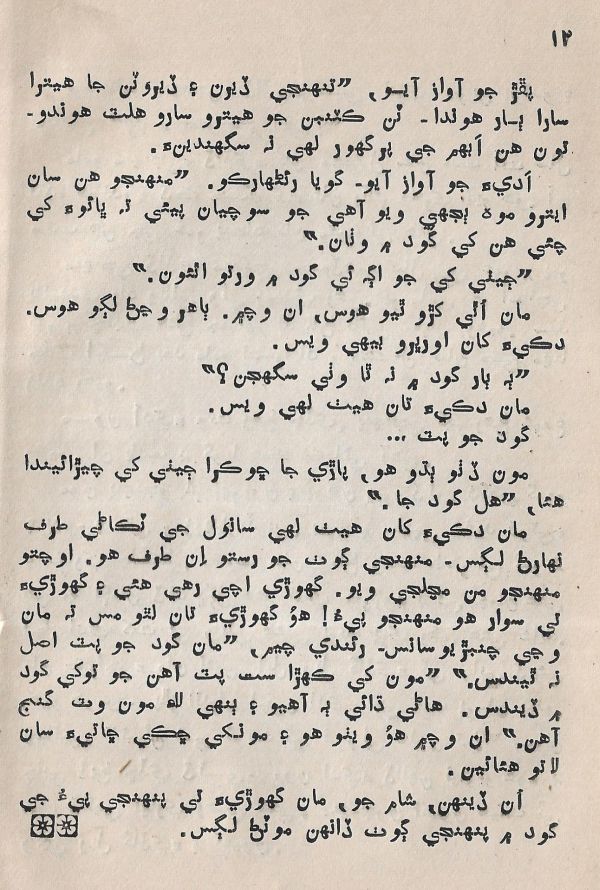 ١٢
پٿڙ جو آواز آيو، ”تنهنجي ڏيرن ۽ ڏيروٽن جا هيترا
سارا ٻار هوندا۔ ٽن ڪٽنبن جو هيترو سارو هلت هوندو۔
تون هن اَبهم جي پرگهور لهي نہ سگهندينءَ.
اَديءَ جو آواز آيو۔ گويا رئڻهارڪو. ”منهنجو هن سان
ايترو موهہ ٻجهي ويو آهي جو سوچيان پيئي تہ ڀائوءَ کي
چئي هن کي گود ۾ وٺان.“
”جيئي کي جو اڳہ ئي گود ۾ ورتو اٿئون.“
مان اُٿي کڙو ٿيو هوس، ان وچ۾. ٻاهر وڃڻ لڳو هوس.
دڪيءَ کان اوريرو بيهي ويس.
”ٻہ ٻار گود ۾ نہ ٿا وٺي سگهجن؟“
مان دڪيءَ تان هيٺ لهي ويس.
گود جو پٽ ...
مون ڏٺو ٻڌو هو، پاڙي جا ڇوڪرا جيئي کي چيڙائيندا
هئا، ”هل گود جا.“
مان دڪيءَ کان هيٺ لهي سانول جي ٽڪاڻي طرف
نهارڻ لڳس۔ منهنجي ڳوٺ جو رستو اِن طرف هو. اوچتو
منهنجو من مچلجي ويو. گهوڙي اچي رهي هئي ۽ گهوڙيءَ
تي سوار هو منهنجو پيءُ! هوُ گهوڙيءَ تان لٿو مس تہ مان
وڃي چنبڙيوسانس۔ رئندي چيم، ”مان گود جو پٽ اصل
نہ ٿيندس.“ ”مون کي ڪهڙا ست پٽ آهن جو توکي گود
۾ ڏيندس. هاڻي ڌاڻي ٻہ آهيو ۽ ٻنهي لاءِ مون وٽ گنج
آهن.“ ان وچ۾ هوُ ويٺو هو ۽ مونکي ڇڪي ڇاتيءَ سان
لاٿو هئائين.
اُن ڏينهن، شام جو، مان گهوڙيءَ تي پنهنجي پيءُ جي
گود ۾ پنهنجي ڳوٺ ڏانهن موٽڻ لڳس.